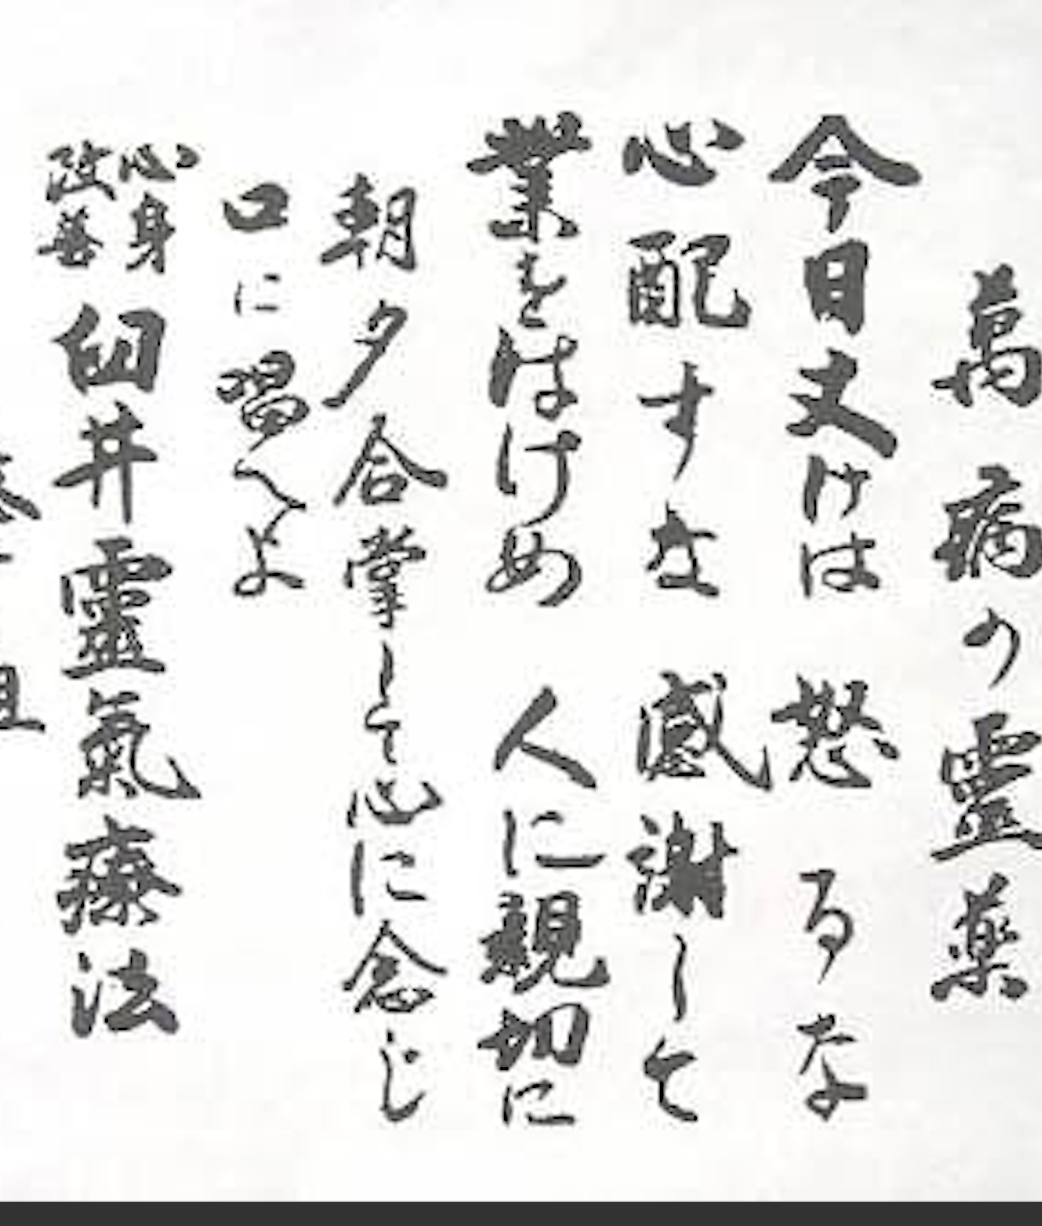 萬病の霊薬
今日丈けは 怒るな
心配すな 感謝して
業をはけめ 人に親切に
朝夕合掌して心に念じ
口に唱へよ
心身
改善
臼井靈氣療法